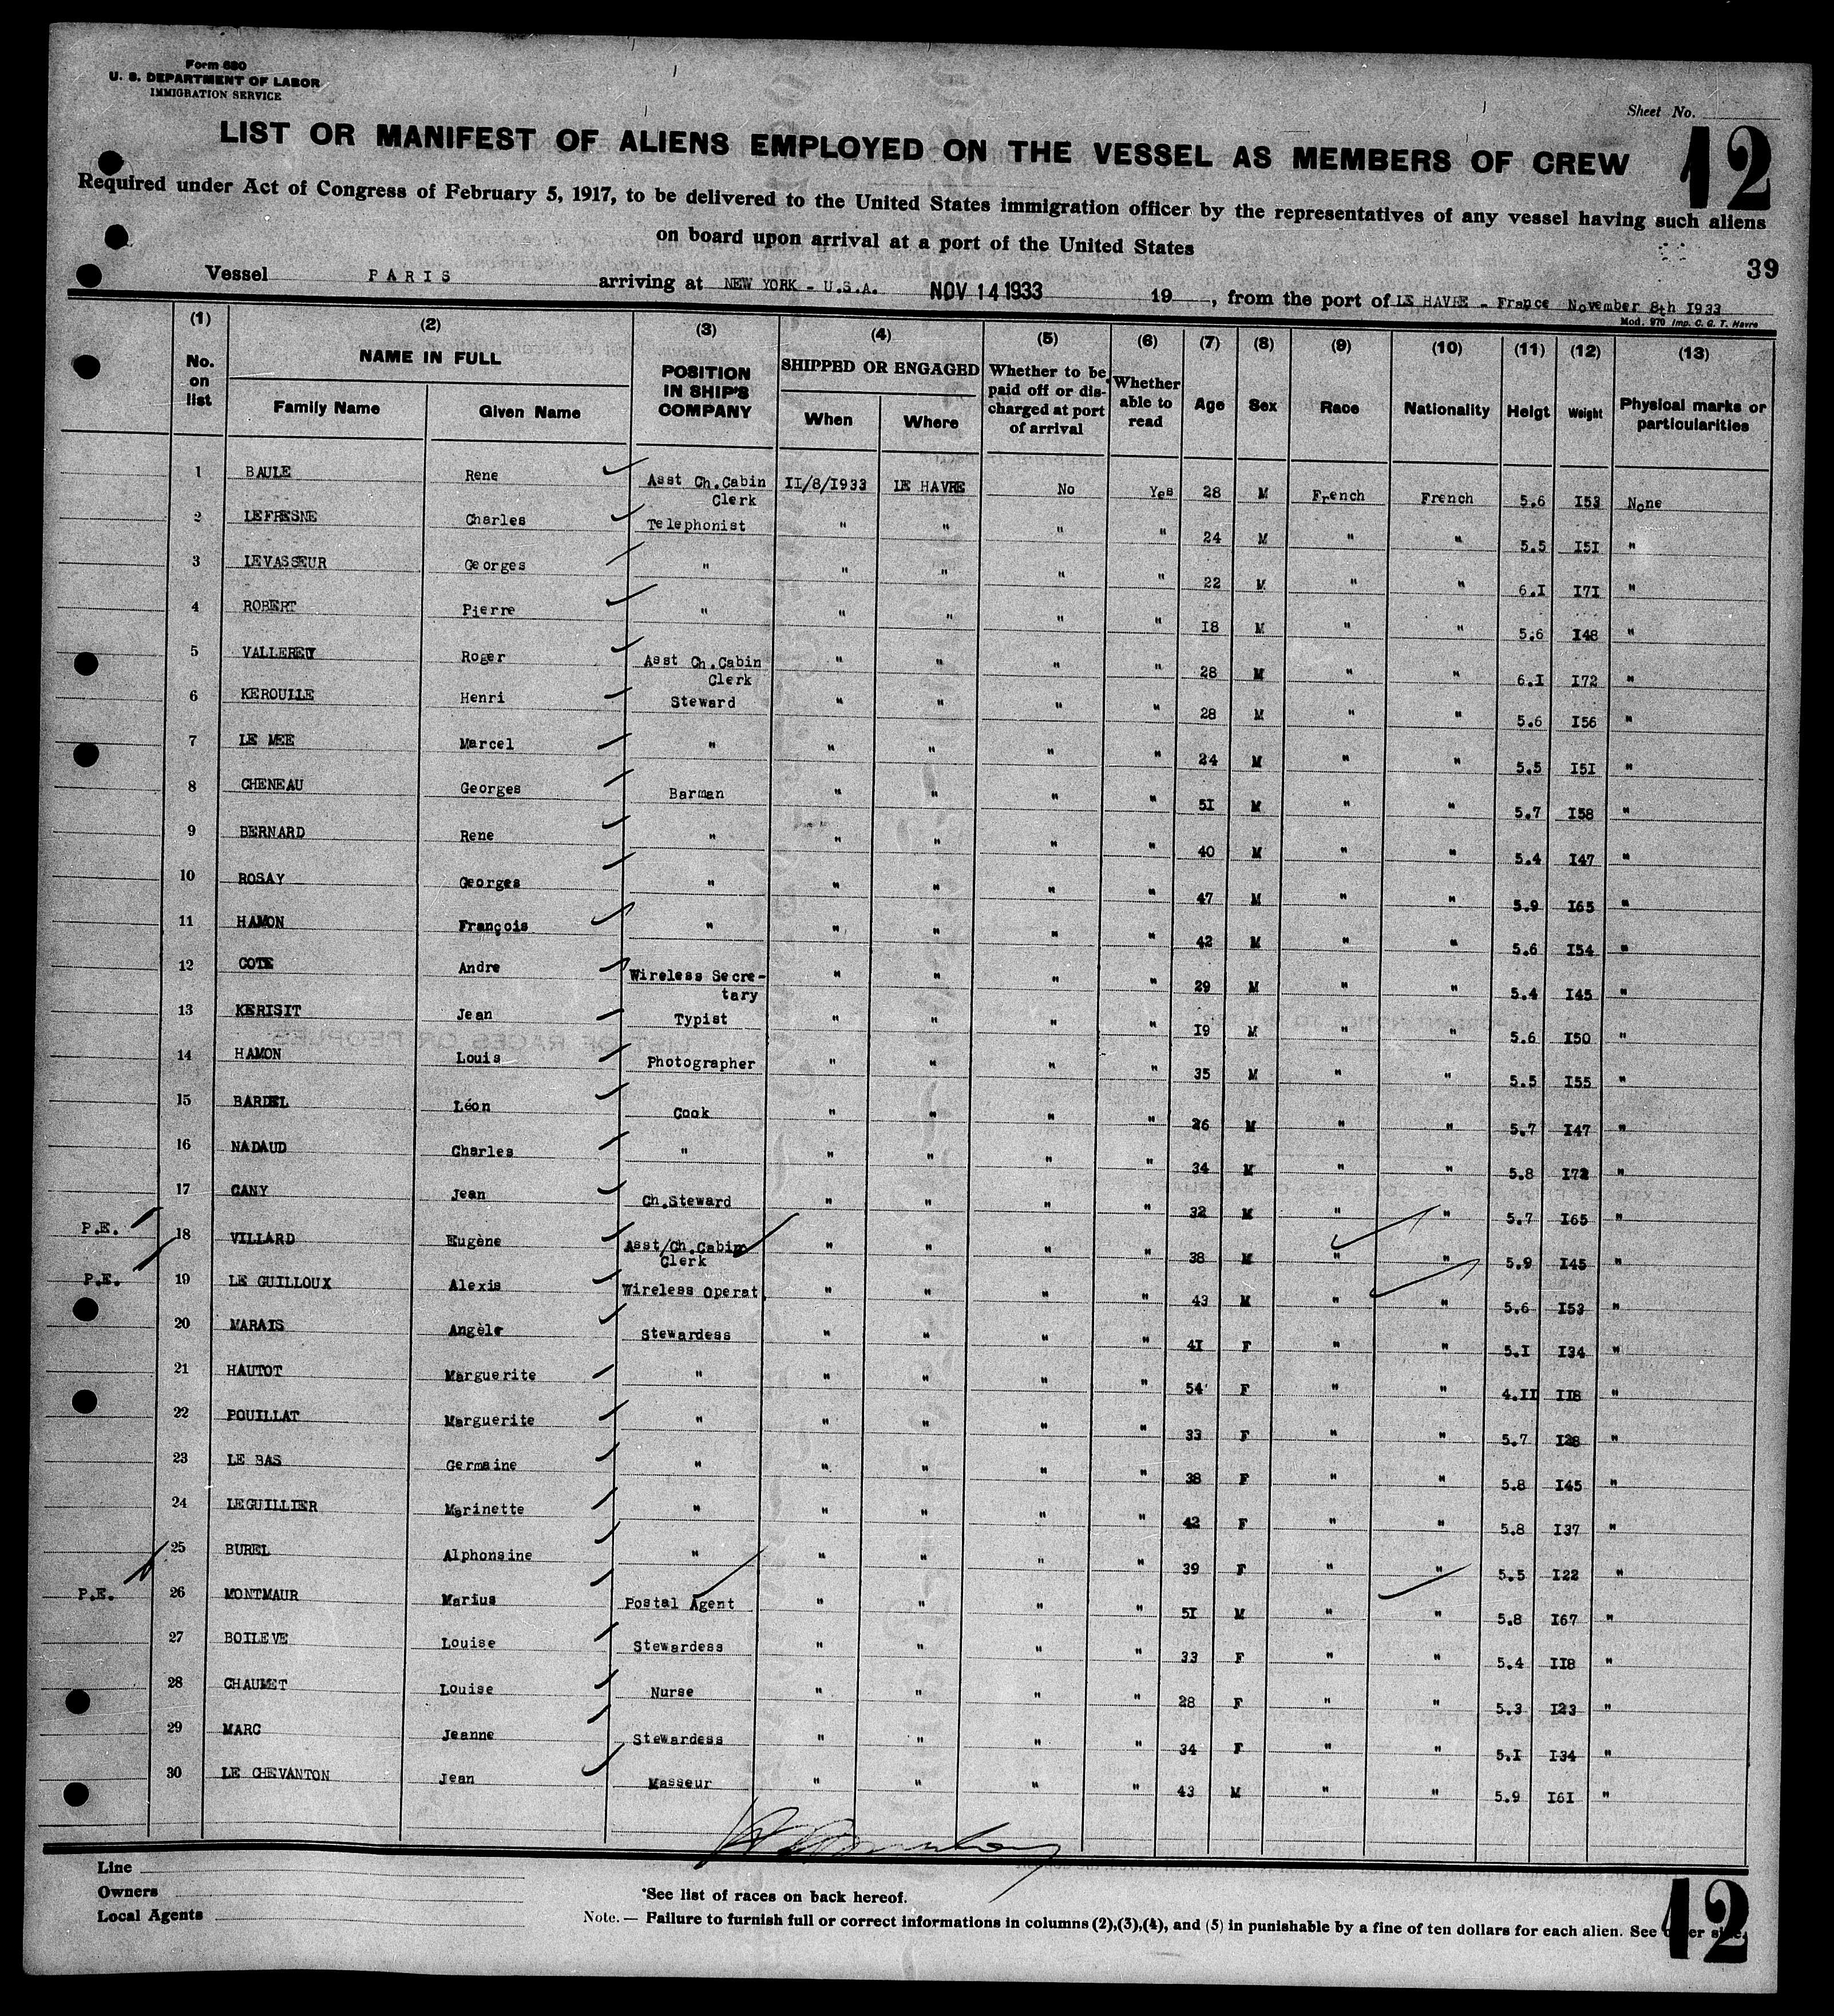 Form 680
U. S. DEPARTMENT OF LABOR
IMMIGRATION SERVICE
Sheet No.
12
LIST OR MANIFEST OF ALIENS EMPLOYED ON THE VESSEL AS MEMBERS OF CREW
Required under Act of Congress of February 5, 1917, to be delivered to the United States immigration officer by the representatives of any vessel having such aliens
on board upon arrival at a port of the United States
39
Vessel PARIS arriving at NEW YORK - U.S.A. NOV 14 1933 19 , from the port of LE HAVRE - France November 8th I933
Mod. 970 Imp. C. G. T. Havre
(1) (2) (3) (4) (5) (6) (7) (8) (9) (10) (11) (12) (13)
No. on list NAME IN FULL Family Name Given Name POSITION IN SHIP'S COMPANY SHIPPED OR ENGAGED When Where Whether to be paid off or dis-charged at port of arrival Whether able to read Age Sex Race Nationality Heigt Weight Physical marks or particularities
1 BAULE Rene Asst Ch.Cabin Clerk II/8/I933 LE HAVRE No Yes 28 M French French 5.6 I53 None
2 LEFRESNE Charles Telephonist " " " " 24 M " " 5.5 I5I "
3 LEVASSEUR Georges " " " " " 22 M " " 6.I I7I "
4 ROBERT Pierre " " " " " I8 M " " 5.6 I48 "
5 VALLEREY Roger Asst Ch.Cabin Clerk " " " " 28 M " " 6.I I72 "
6 KEROUILE Henri Steward " " " " 28 M " " 5.6 I56 "
7 LE MEE Marcel " " " " " 24 M " " 5.5 I5I "
8 CHENEAU Georges Barman " " " " 5I M " " 5.7 I58 "
9 BERNARD Rene " " " " " 40 M " " 5.4 I47 "
10 ROSAY Georges " " " " " 47 M " " 5.9 I65 "
11 HAMON François " " " " " 42 M " " 5.6 I54 "
12 COTE Andre Wireless Secre-tary " " " " 29 M " " 5.4 I45 "
13 KERISIT Jean Typist " " " " I9 M " " 5.6 I50 "
14 HAMON Louis Photographer " " " " 35 M " " 5.5 I55 "
15 BARDEL Léon Cook " " " " 26 M " " 5.7 I47 "
16 NADAUD Charles " " " " " 34 M " " 5.8 I72 "
17 CANY Jean Ch.Steward " " " " 32 M " " 5.7 I65 "
P.E. 18 VILLARD Eugène Asst/Ch.Cabin Clerk " " " " 38 M " " 5.9 I45 "
P.E. 19 LE GUILLOUX Alexis Wireless Operat. " " " " 43 M " " 5.6 I53 "
20 MARAIS Angèle Stewardess " " " " 4I F " " 5.I I34 "
21 HAUTOT Marguerite " " " " " 54 F " " 4.II II8 "
22 POUILLAT Marguerite " " " " " 33 F " " 5.7 I28 "
23 LE BAS Germaine " " " " " 38 F " " 5.8 I45 "
24 LEGUILLIER Marinette " " " " " 42 F " " 5.8 I37 "
25 BUREL Alphonsine " " " " " 39 F " " 5.5 I22 "
P.E. 26 MONTMAUR Marius Postal Agent " " " " 5I M " " 5.8 I67 "
27 BOILEVE Louise Stewardess " " " " 33 F " " 5.4 II8 "
28 CHAUMET Louise Nurse " " " " 28 F " " 5.3 I23 "
29 MARC Jeanne Stewardess " " " " 34 F " " 5.I I34 "
30 LE CHEVANTON Jean Masseur " " " " 43 M " " 5.9 I6I "
Line
Owners
Local Agents
*See list of races on back hereof.
Note. — Failure to furnish full or correct informations in columns (2),(3),(4), and (5) in punishable by a fine of ten dollars for each alien. See other side.
12